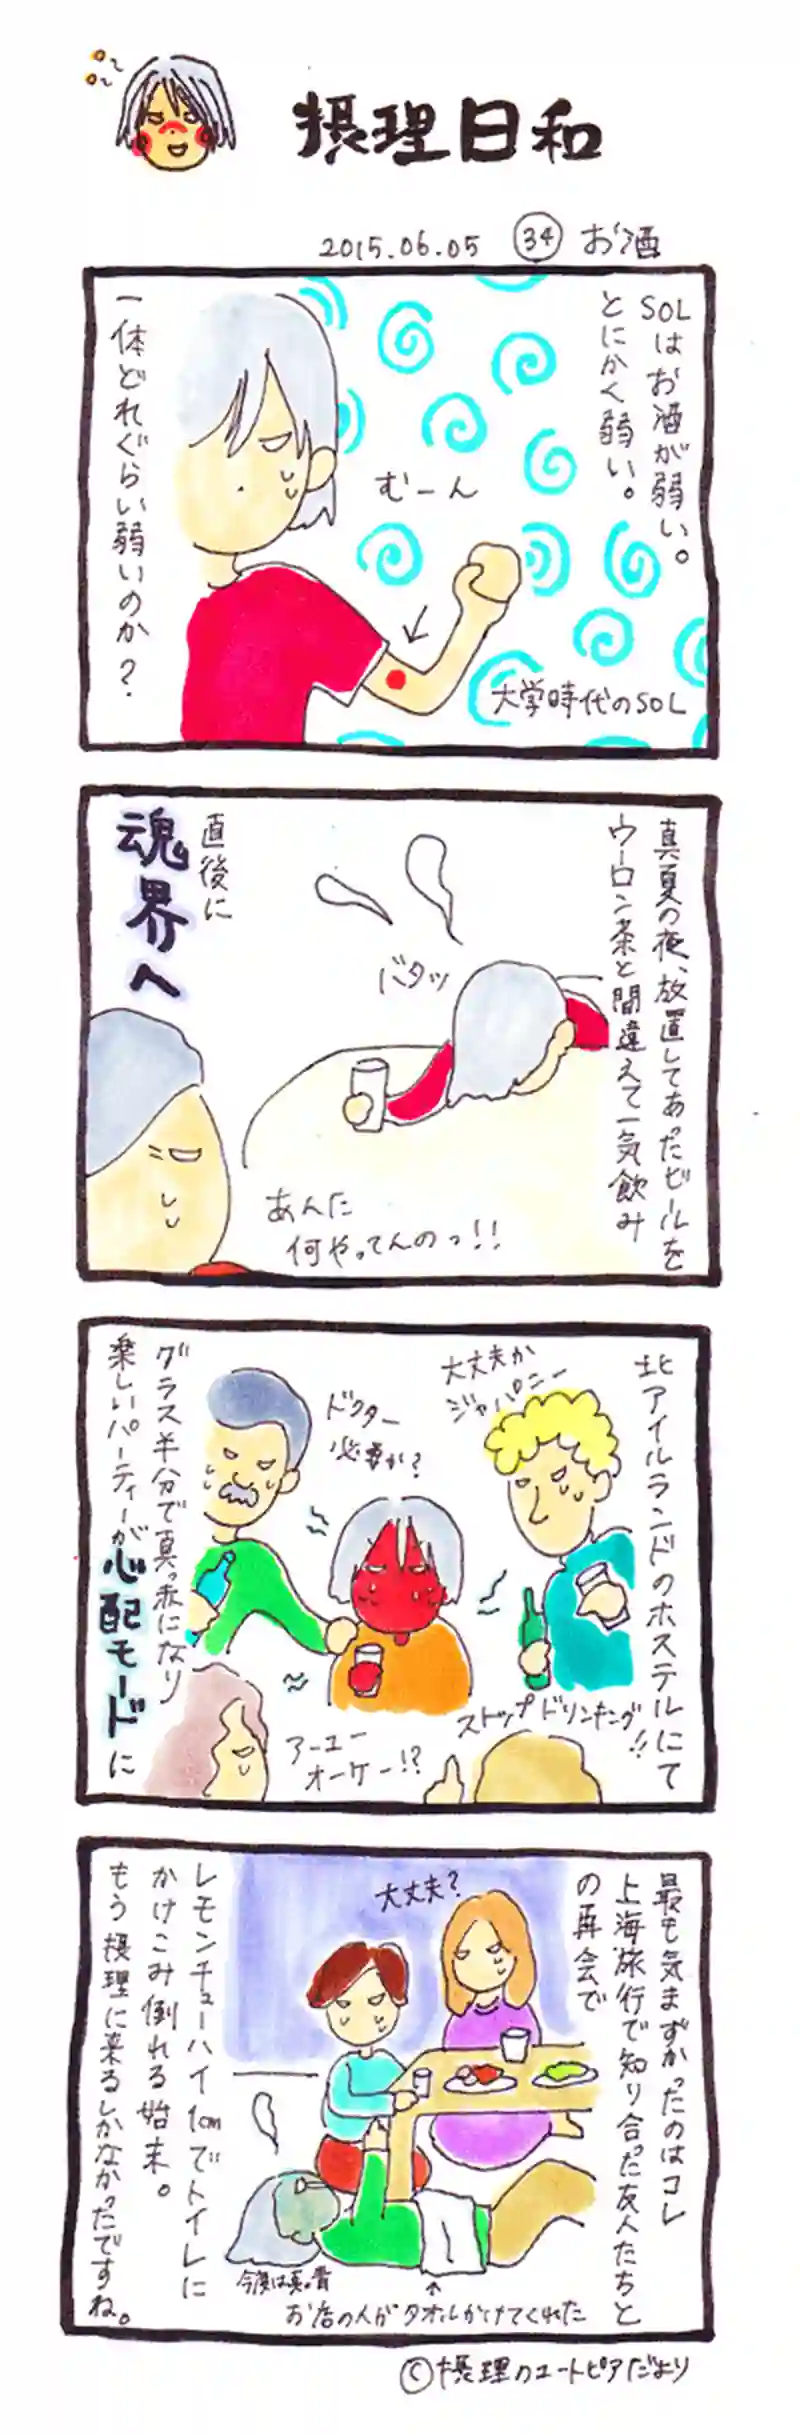 摂理日和
2015.06.05 ㉞ お酒
SOLはお酒が弱い。
とにかく弱い。
むーん
大学時代のSOL
一体どれぐらい弱いのか?
真夏の夜、放置してあったビールを
ウーロン茶と間違えて一気飲み
バタッ
あんた
何やってんのっ!!
直後に
魂界へ
北アイルランドのホステルにて
大丈夫か
ジャパニー
ドクター
必要か?
ストップドリンキング!!
アーユー
オーケー!?
グラス半分で真っ赤になり
楽しいパーティーが心配モードに
最も気まずかったのはコレ
上海旅行で知り合った友人たちと
の再会で
大丈夫?
レモンチューハイ1cmでトイレに
かけこみ倒れる始末。
もう摂理に来るしかなかったですね。
今度は真っ青
お店の人がタオルかけてくれた
©摂理のユートピアだより